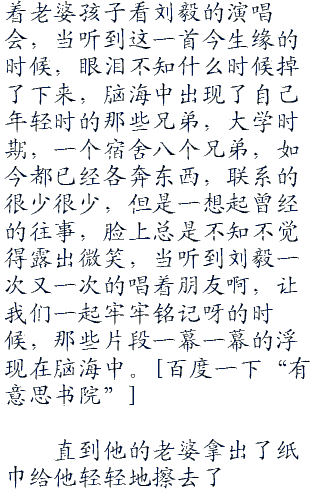 着老婆孩子看刘毅的演唱
会，当听到这一首今生缘的
时候，眼泪不知什么时候掉
了下来，脑海中出现了自己
年轻时的那些兄弟，大学时
期，一个宿舍八个兄弟，如
今都已经各奔东西，联系的
很少很少，但是一想起曾经
的往事，脸上总是不知不觉
得露出微笑，当听到刘毅一
次又一次的唱着朋友啊，让
我们一起牢牢铭记呀的时
候，那些片段一幕一幕的浮
现在脑海中。[百度一下“有
意思书院”]
直到他的老婆拿出了纸
巾给他轻轻地擦去了